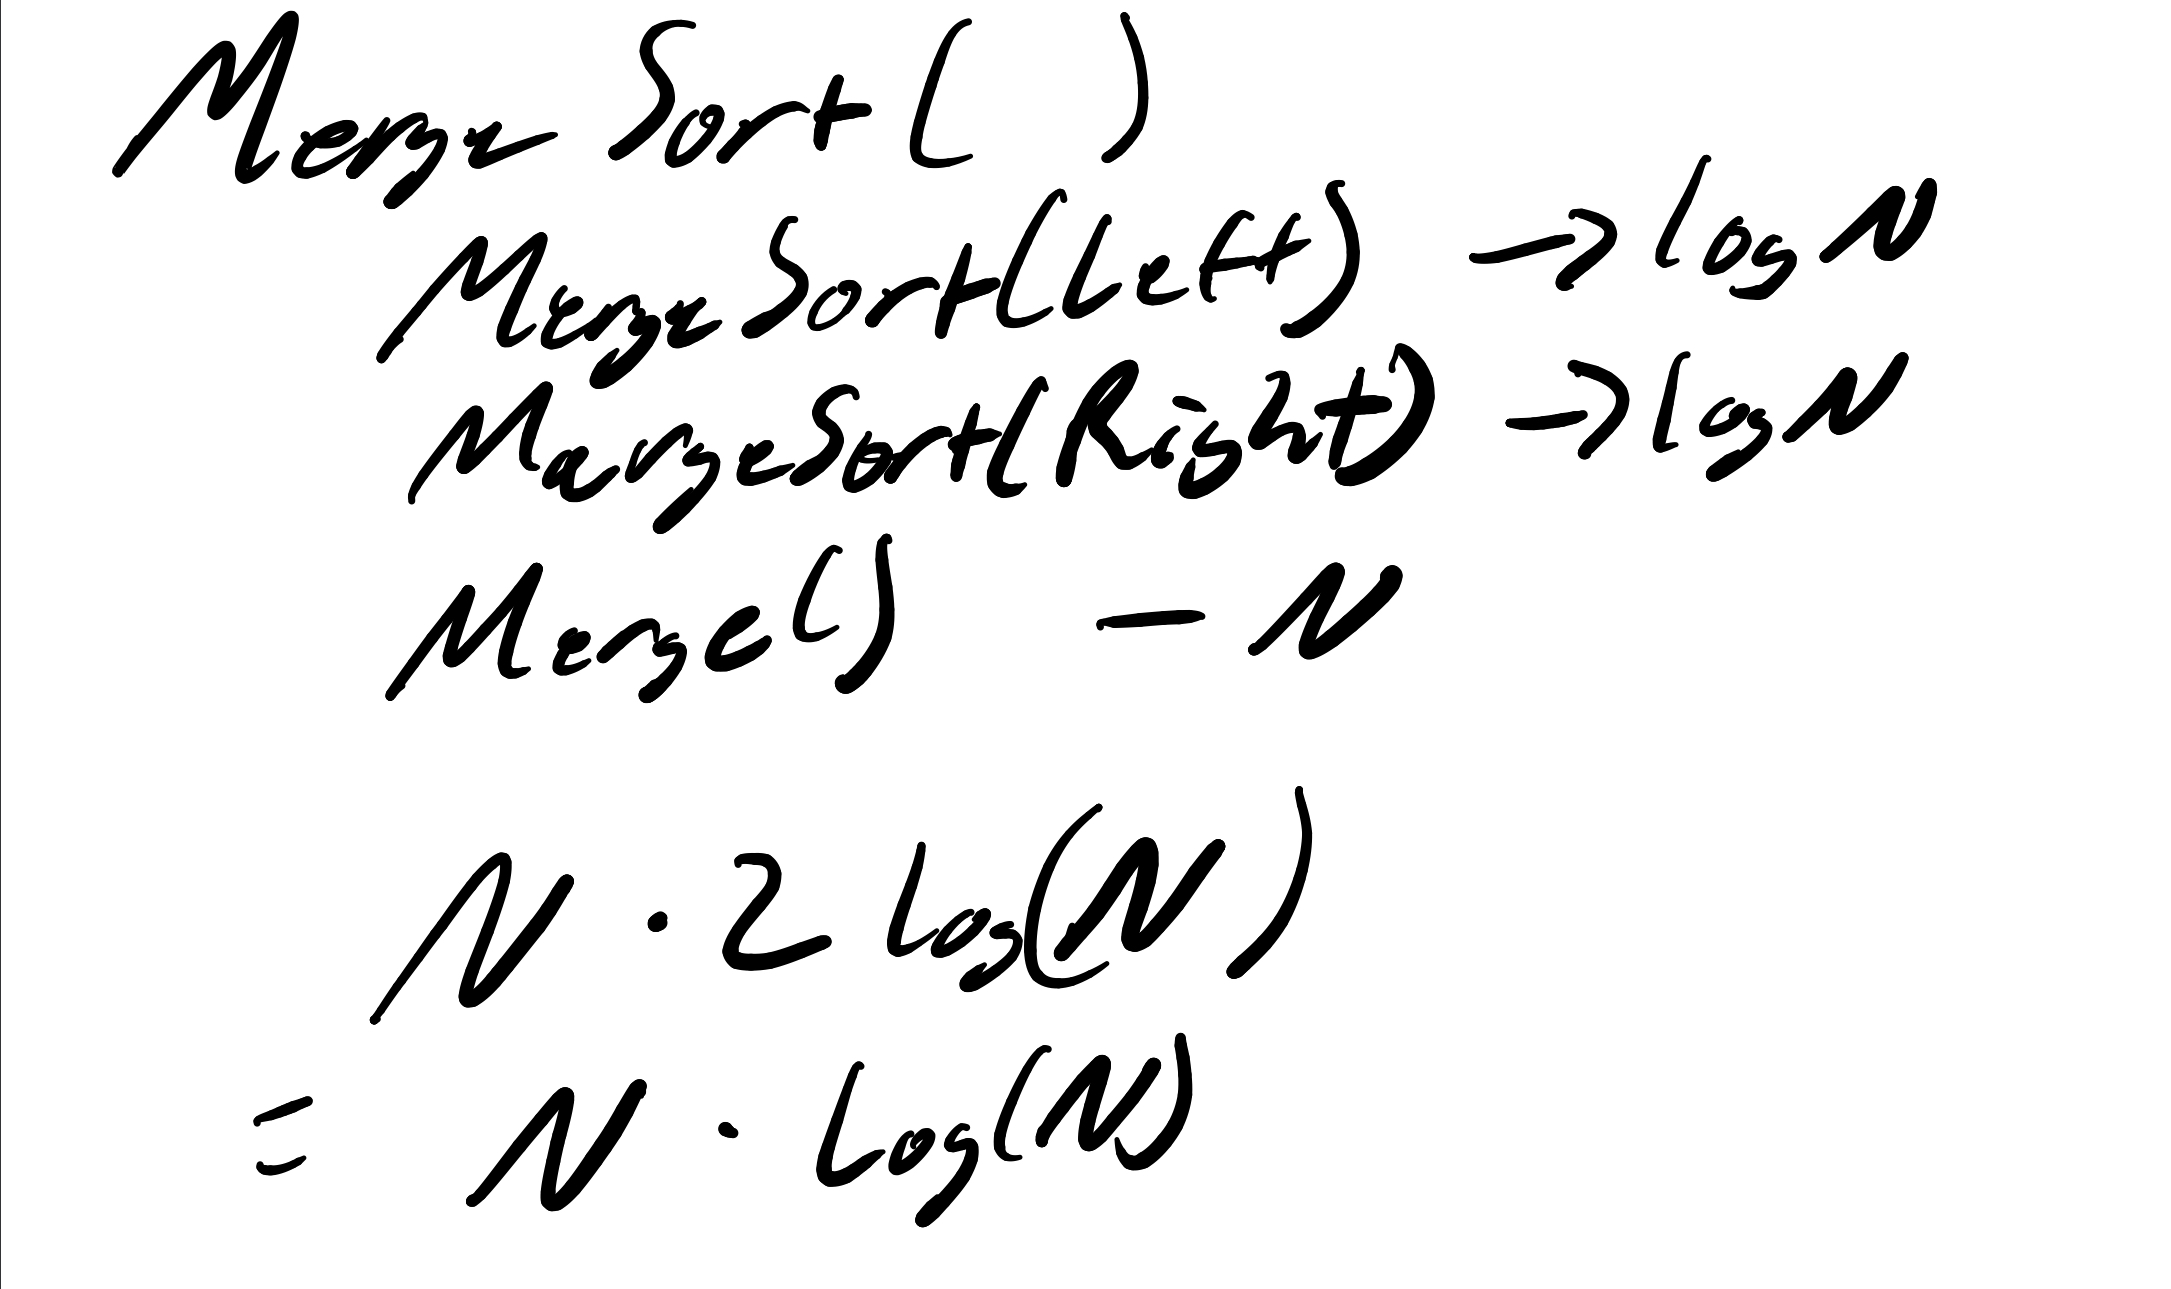 Merge Sort( )
MergeSort(Left) → log N
MargeSort(Right) → log N
Merge() - N
N · 2 Log(N)
= N · Log(N)